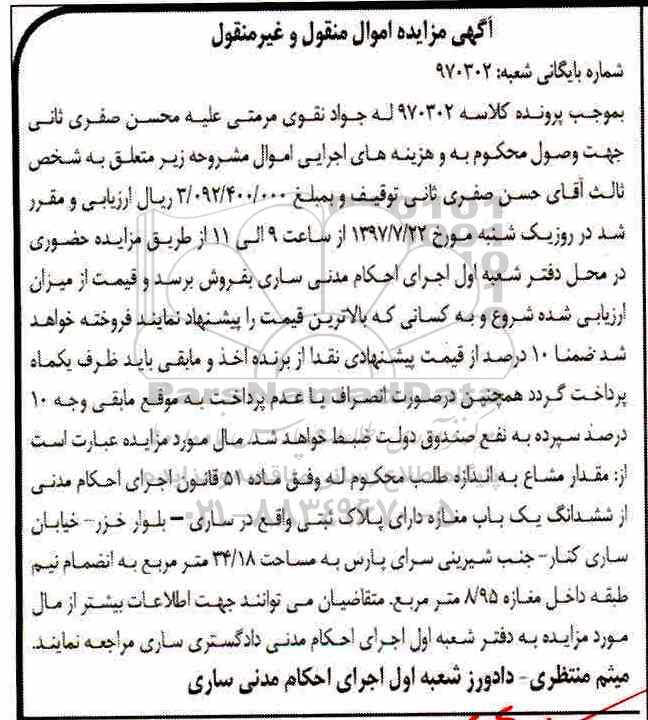 آگهی مزایده اموال منقول و غیرمنقول
شماره بایگانی شعبه: ۹۷۰۳۰۲
بموجب پرونده کلاسه ۹۷۰۳۰۲ له جواد نقوی مرمتی علیه محسن صفری ثانی
جهت وصول محکوم به و هزینه های اجرایی اموال مشروحه زیر متعلق به شخص
ثالث آقای حسن صفری ثانی توقیف و بمبلغ ۳/۰۹۲/۴۰۰/۰۰۰ ریال ارزیابی و مقرر
شد در روزیک شنبه مورخ ۱۳۹۷/۷/۲۲ از ساعت ۹ الی ۱۱ از طریق مزایده حضوری
در محل دفتر شعبه اول اجرای احکام مدنی ساری بفروش برسد و قیمت از میزان
ارزیابی شده شروع و به کسانی که بالاترین قیمت را پیشنهاد نمایند فروخته خواهد
شد ضمنا ۱۰ درصد از قیمت پیشنهادی نقدا از برنده اخذ و مابقی باید ظرف یکماه
پرداخت گردد همچنین درصورت انصراف یا عدم پرداخت به موقع مابقی وجه ۱۰
درصد سپرده به نفع صندوق دولت ضبط خواهد شد. مال مورد مزایده عبارت است
از: مقدار مشاع به اندازه طلب محکوم له وفق ماده ۵۱ قانون اجرای احکام مدنی
از ششدانگ یک باب مغازه دارای پلاک ثبتی واقع در ساری – بلوار خزر- خیابان
ساری کنار- جنب شیرینی سرای پارس به مساحت ۳۴/۱۸ متر مربع به انضمام نیم
طبقه داخل مغازه ۸/۹۵ متر مربع. متقاضیان می توانند جهت اطلاعات بیشتر از مال
مورد مزایده به دفتر شعبه اول اجرای احکام مدنی دادگستری ساری مراجعه نمایند.
میثم منتظری- دادورز شعبه اول اجرای احکام مدنی ساری
ParsNamadData
۰۲۱-۸۸۳۴۹۶۷۰-۵